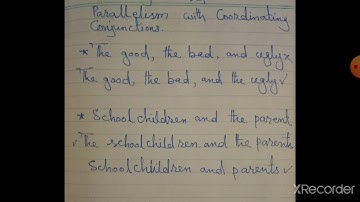 Parallelism with Coordinating
Conjunctions.
* The good, the bad, and ugly x
The good, the bad, and the ugly ✓
* School children and the parent
✓ The schoolchildren and the parents
Schoolchildren and parents ✓
XRecorder